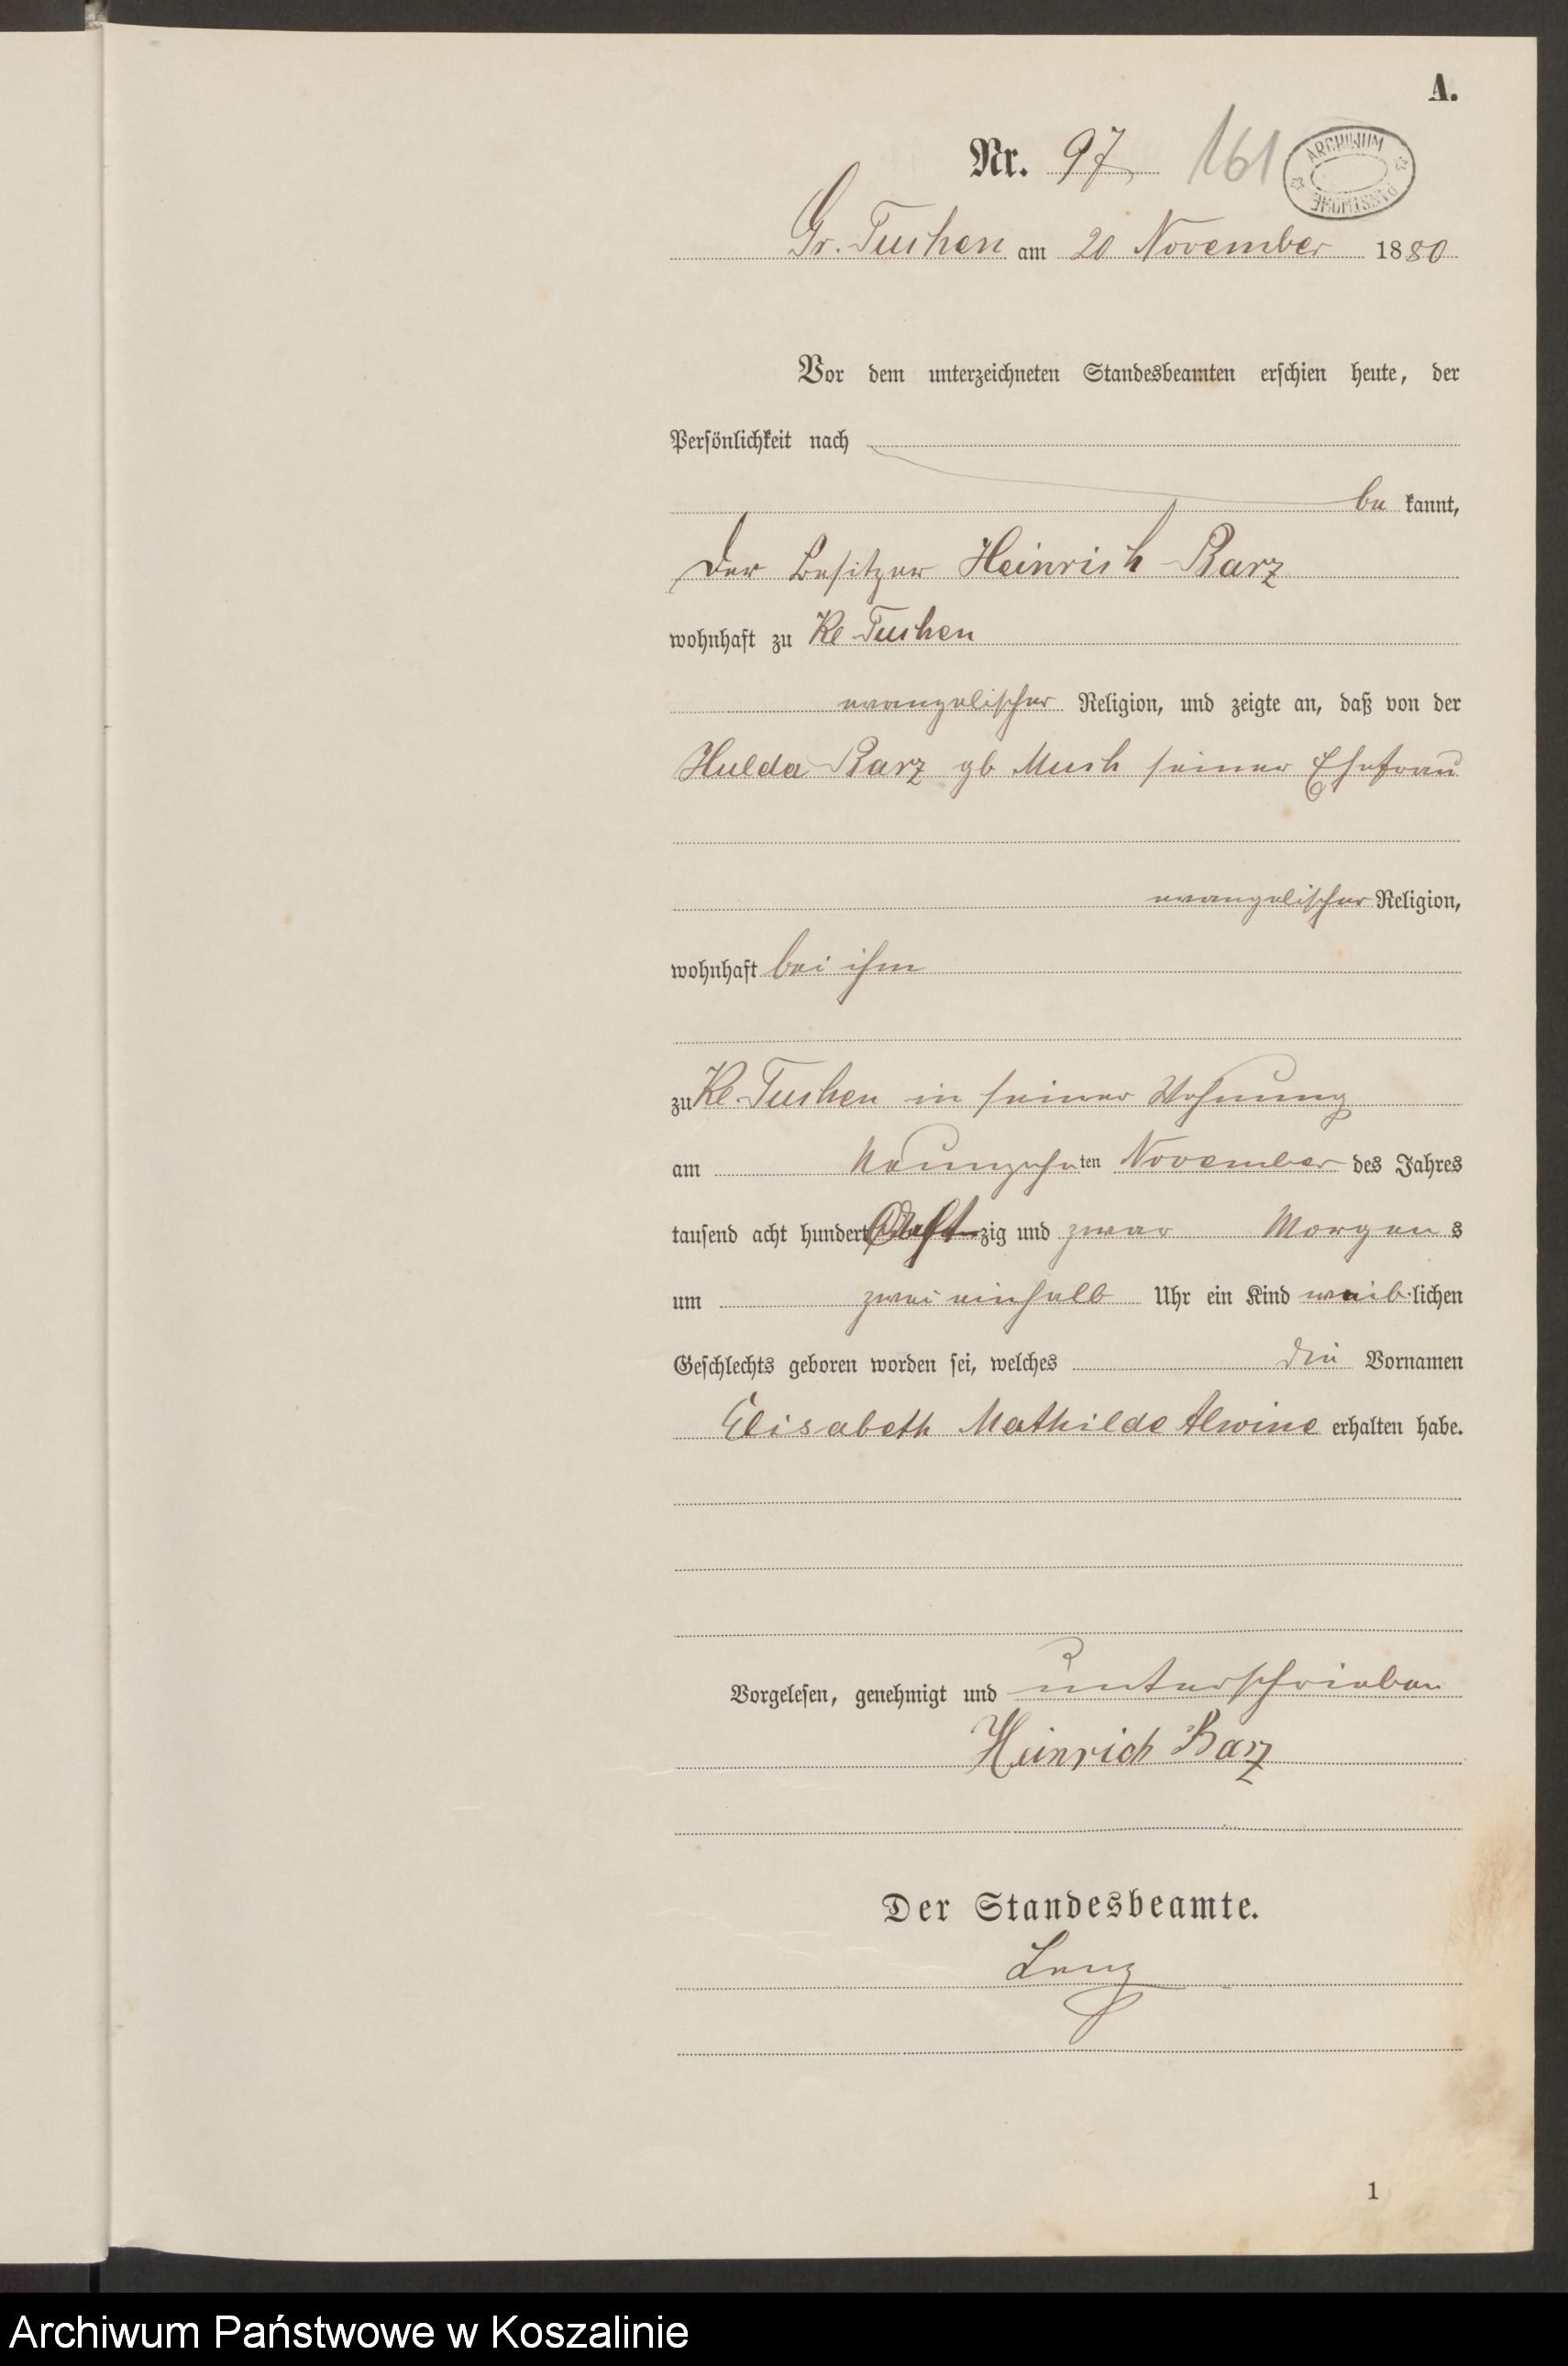 A.
Nr. 97 161
ARCHIWUM PAŃSTWOWE
Gr. Tuchen am 20 November 1880
Vor dem unterzeichneten Standesbeamten erschien heute, der
Persönlichkeit nach
be kannt,
der Besitzer Heinrich Barz
wohnhaft zu Kl Tuchen
evangelischer Religion, und zeigte an, daß von der
Hulda Barz gb Much seiner Ehefrau
evangelischer Religion,
wohnhaft bei ihm
zu Kl. Tuchen in seiner Wohnung
am Neunzehnten November des Jahres
tausend acht hundert achtzig und zwar Morgens
um zwei einhalb Uhr ein Kind weiblichen
Geschlechts geboren worden sei, welches die Vornamen
Elisabeth Mathilde Alwine erhalten habe.
Vorgelesen, genehmigt und unterschrieben
Heinrich Barz
Der Standesbeamte.
Lenz
1
Archiwum Państwowe w Koszalinie